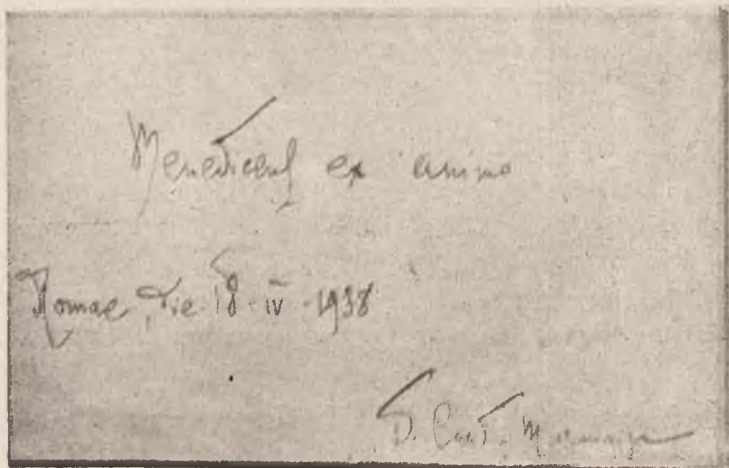 Benedicens ex animo
Romae, die 18-IV-1938
D. Card.